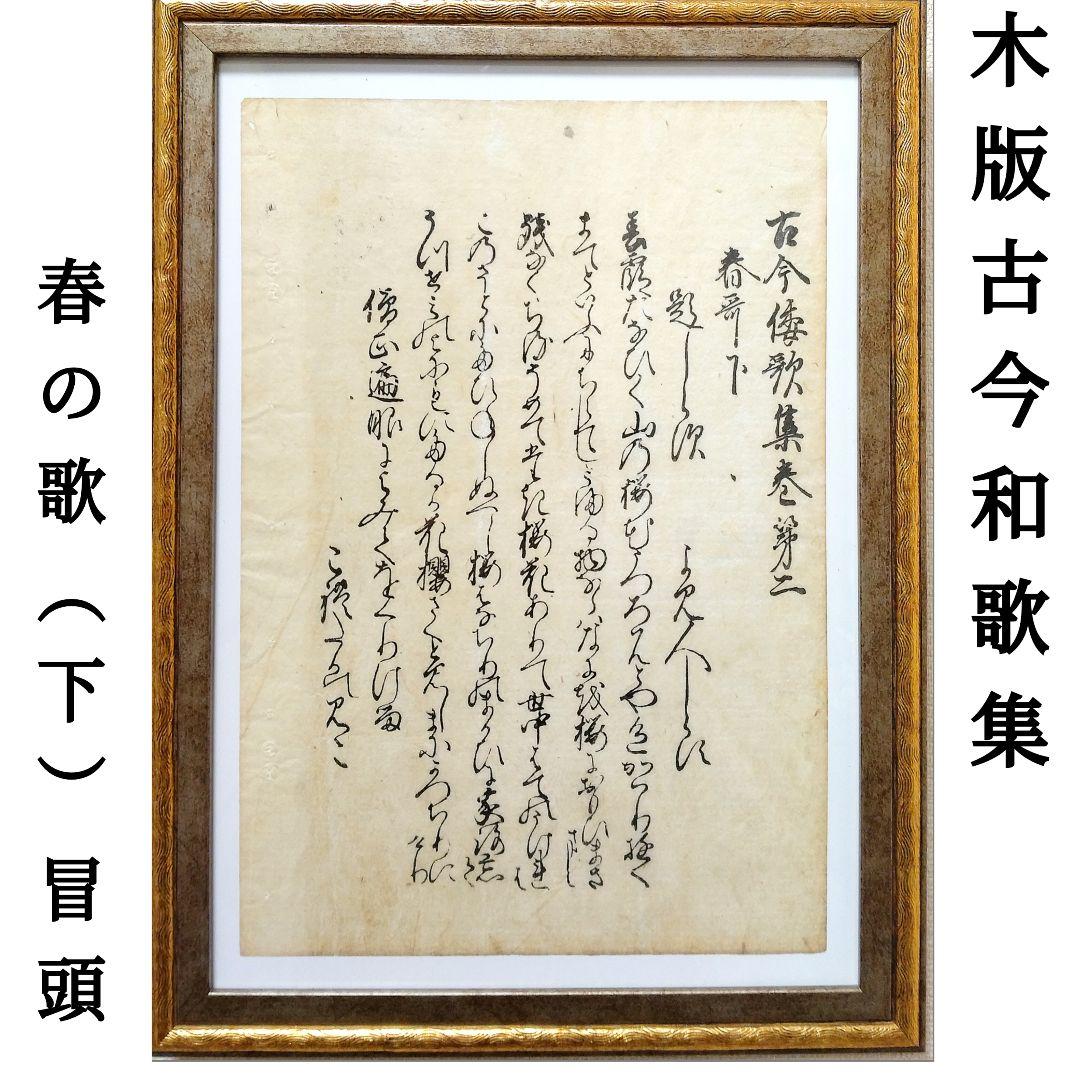 木版古今和歌集
古今倭歌集巻第二
春哥下
題しらす　よみ人しらす
春霞たなひく山の桜花うつろはんとや色かはり行
まてといふにちらてしとまる物ならはなにを桜におもひまさまし
残なくちるそめてたき桜花ありて世中はてのうけれは
このさとにたひねしぬへし桜はなちりのまかひに家路忘て
うつせみの世にもにたるか花櫻さくと見しまにかつちりにけり
僧正遍昭によみてをくりける
これたかのみこ
春の歌（下）冒頭